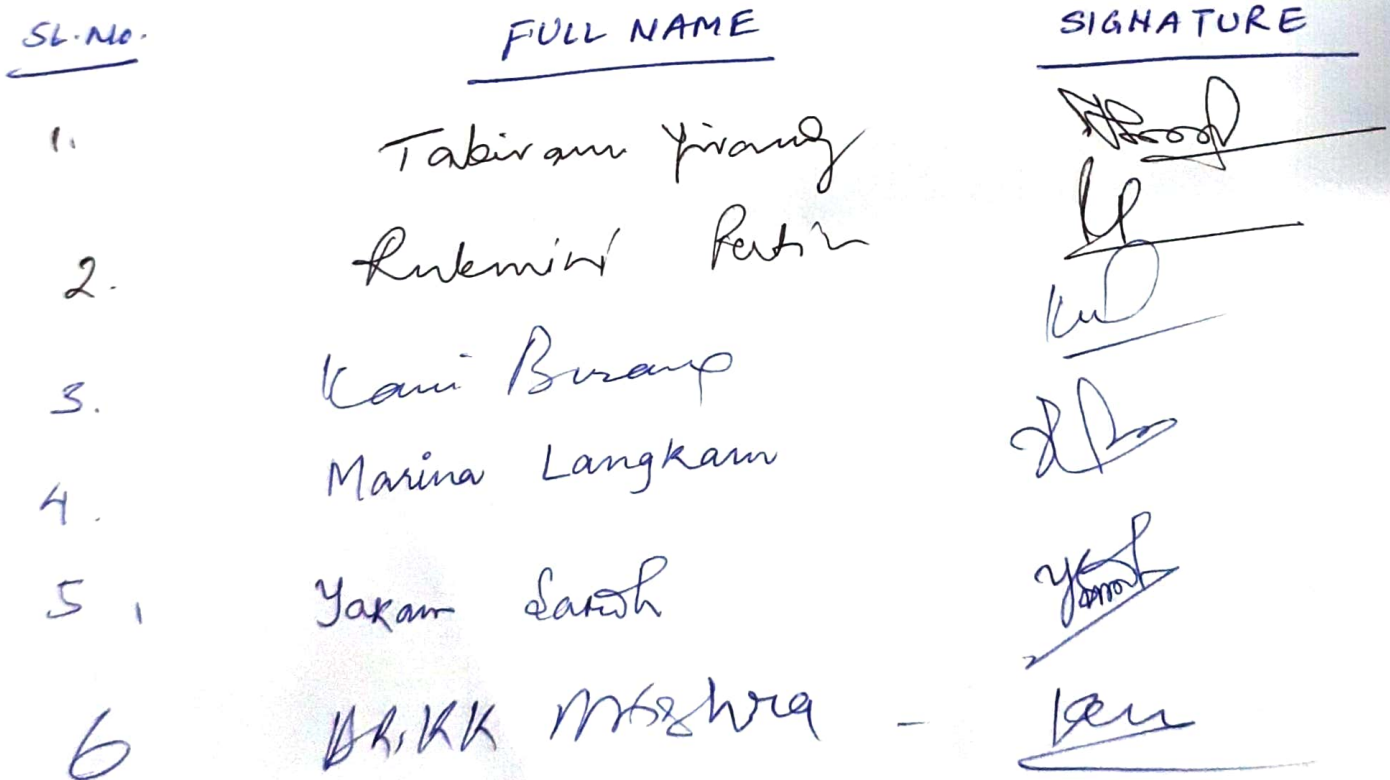 SL.No. FULL NAME SIGNATURE
1. Tabiram Yirang
2. Rukmini Pertin
3. Kani Burang
4. Marina Langkam
5, Yakam Saroh
6 DR.KK Mishra -